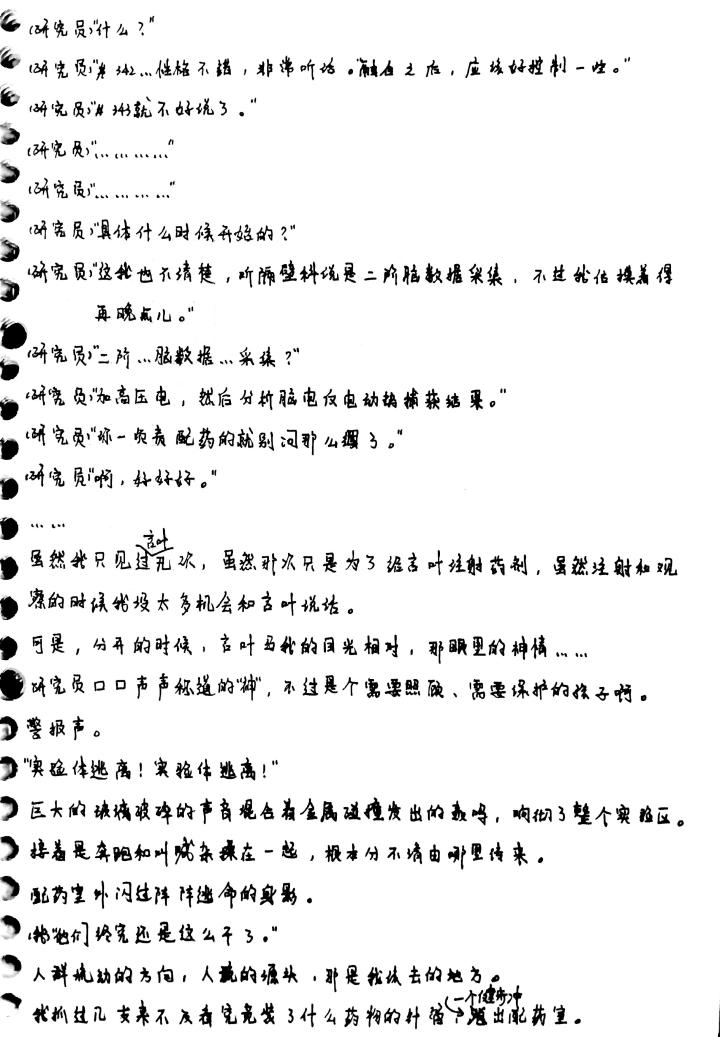 (研究员)"什么？"
(研究员)"#342…性格不错，非常听话。融合之后，应该好控制一些。"
(研究员)"#343就不好说了。"
(研究员)"…………"
(研究员)"…………"
(研究员)"具体什么时候开始的？"
(研究员)"这我也不清楚，听隔壁科说是二阶脑数据采集，不过我估摸着得
再晚点儿。"
(研究员)"二阶…脑数据…采集？"
(研究员)"加高压电，然后分析脑电仪电动势捕获结果。"
(研究员)"你一负责配药的就别问那么深了。"
(研究员)"啊，好好好。"
……
虽然我只见过言叶几次，虽然那次只是为了给言叶注射药剂，虽然注射和观
察的时候我没太多机会和言叶说话。
可是，分开的时候，言叶与我的目光相对，那眼里的神情……
研究员口口声声称道的"神"，不过是个需要照顾、需要保护的孩子啊。
警报声。
"实验体逃离！实验体逃离！"
巨大的玻璃破碎的声音混合着金属碰撞发出的轰鸣，响彻了整个实验区。
接着是奔跑和叫喊杂糅在一起，根本分不清由哪里传来。
配药室外闪过阵阵逃命的身影。
(我)"他们终究还是这么干了。"
人群流动的方向，人流的源头，那是我该去的地方。
我抓过几支来不及看究竟装了什么药物的针管，一个健步冲出配药室。